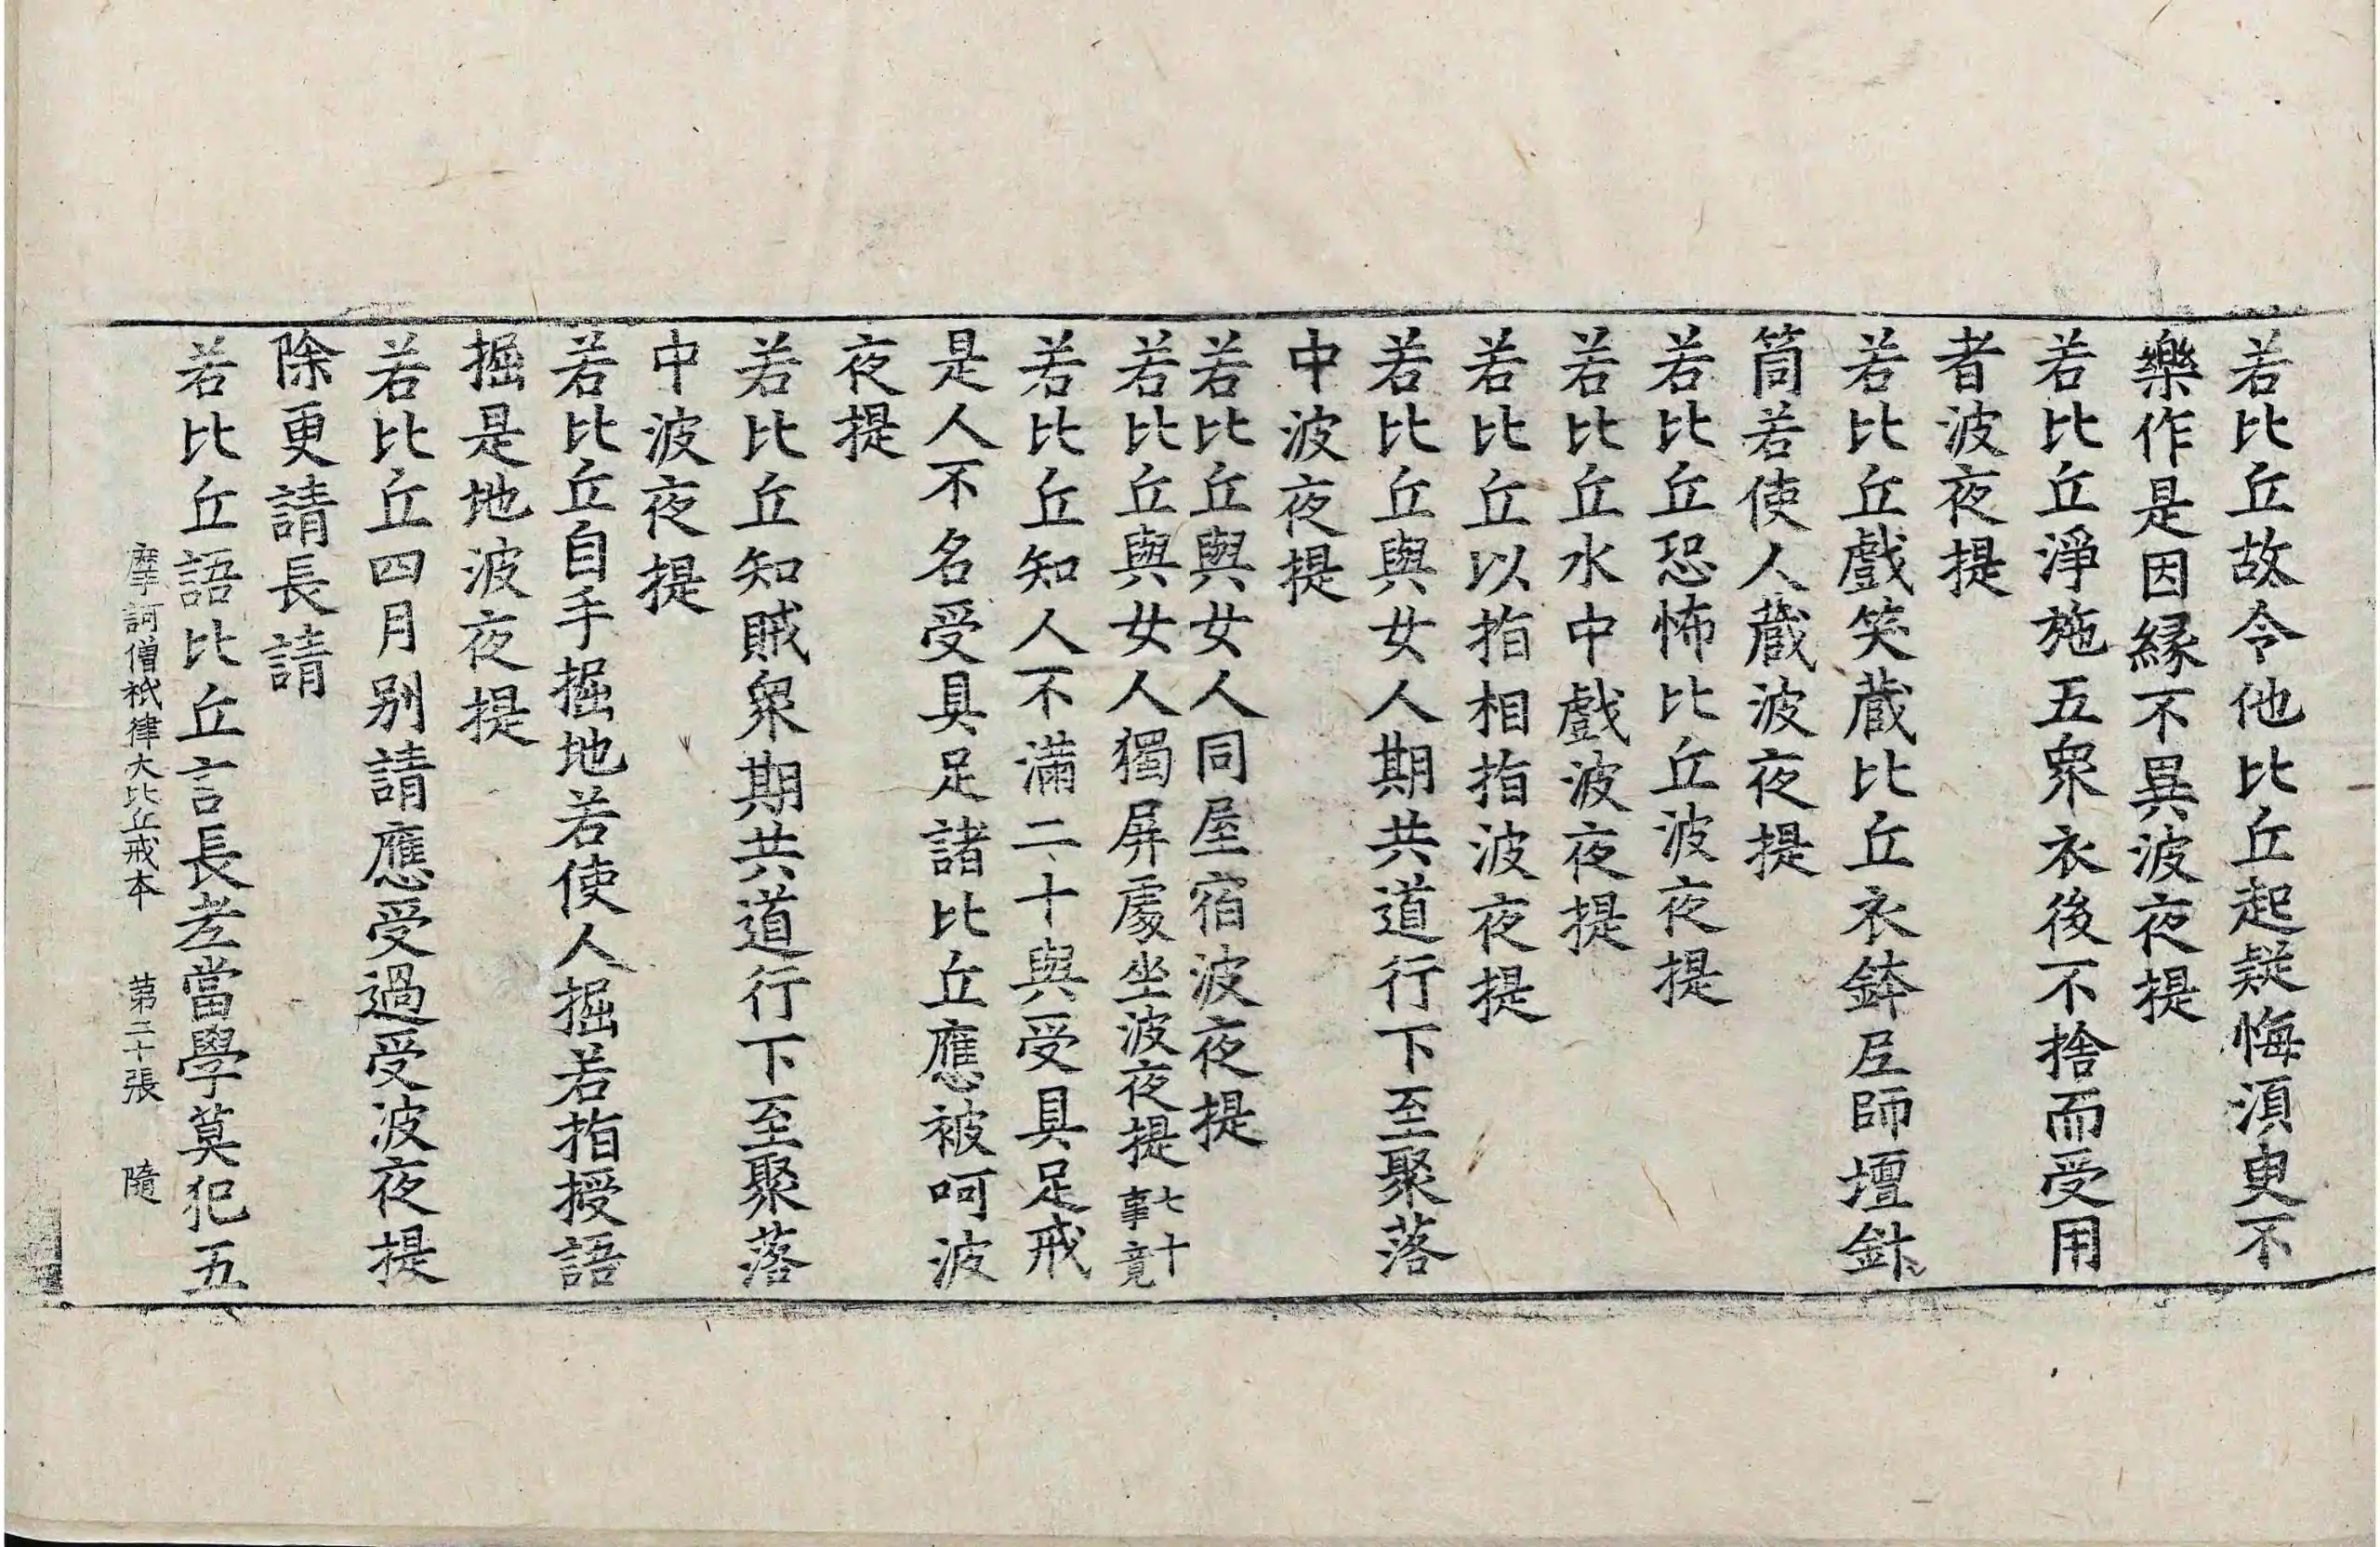 若比丘故令他比丘起疑悔湏臾不
樂作是因縁不異波夜提
若比丘淨施五衆衣後不捨而受用
者波夜提
若比丘戲笑藏比丘衣鉢尼師壇針
筒若使人藏波夜提
若比丘恐怖比丘波夜提
若比丘水中戲波夜提
若比丘以指相指波夜提
若比丘與女人期共道行下至聚落
中波夜提
若比丘與女人同屋宿波夜提
若比丘與女人獨屏處坐波夜提 七十事竟
若比丘知人不滿二十與受具足戒
是人不名受具足諸比丘應被呵波
夜提
若比丘知賊衆期共道行下至聚落
中波夜提
若比丘自手掘地若使人掘若指授語
掘是地波夜提
若比丘四月别請應受過受波夜提
除更請長請
若比丘語比丘言長老當學莫犯五
摩訶僧祇律大比丘戒本 第二十張 隨